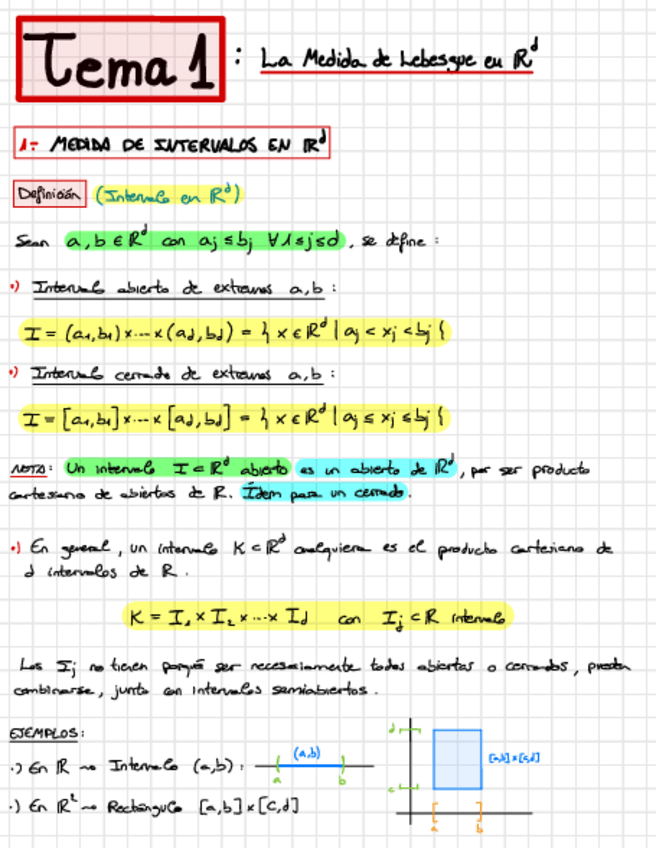 Tema 1 : La Medida de Lebesgue en ℝᵈ
1- MEDIDA DE INTERVALOS EN ℝᵈ
Definición (Intervalo en ℝᵈ)
Sean a, b ∈ ℝᵈ con aj ≤ bj ∀ 1 ≤ j ≤ d, se define :
•) Intervalo abierto de extremos a, b :
I = (a₁, b₁) x ... x (ad, bd) = { x ∈ ℝᵈ | aj < xj < bj {
•) Intervalo cerrado de extremos a, b :
I = [a₁, b₁] x ... x [ad, bd] = { x ∈ ℝᵈ | aj ≤ xj ≤ bj {
NOTA: Un intervalo I ⊂ ℝᵈ abierto es un abierto de ℝᵈ, por ser producto
cartesiano de abiertos de R. Ídem para un cerrado.
•) En general, un intervalo K ⊂ ℝᵈ cualquiera es el producto cartesiano de
d intervalos de R.
K = I₁ x I₂ x ... x Id con Ij ⊂ R intervalo
Los Ij no tienen porqué ser necesariamente todos abiertos o cerrados, pueden
combinarse, junto con intervalos semiabiertos.
EJEMPLOS:
·) En ℝ ⇝ Intervalo (a, b) :
(a, b)
a b
·) En ℝ² ⇝ Rectángulo [a, b] x [c, d]
d
[a, b] x [c, d]
c
a b